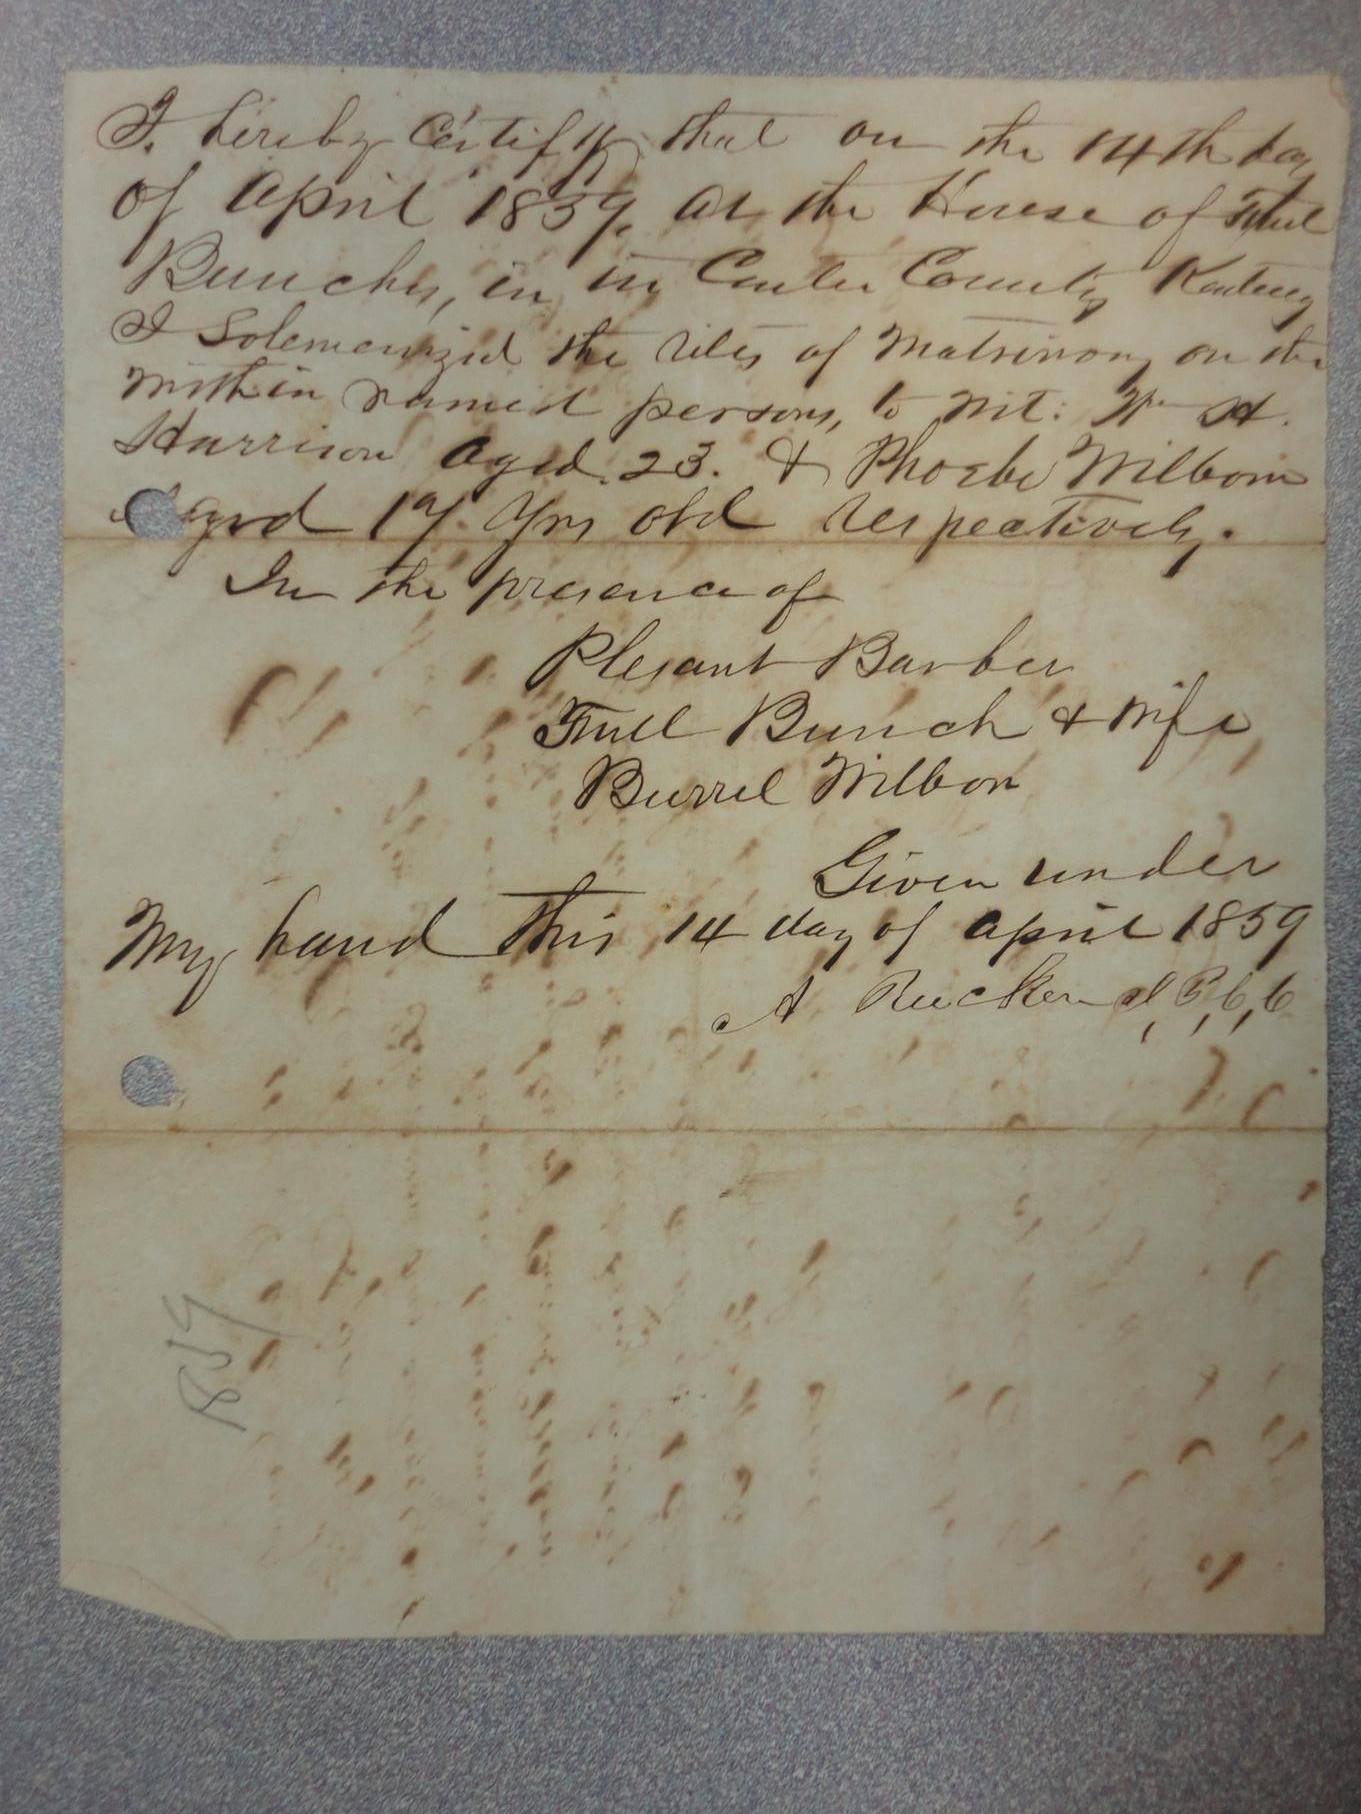 I hereby certify that on the 14th day
of April 1859, at the House of Full
Bunches, in in Carter County Kentucy
I Solemenized the rites of Matrimony on the
within named persons, to wit: Wm H.
Harrison aged 23. & Phoebe Wilborn
aged 19 Yrs old respectively.
In the presence of
Plesant Barber
Full Bunch & Wife
Burrel Wilborn
Given under
My hand this 14 day of april 1859
A Rucker J, P, C, C